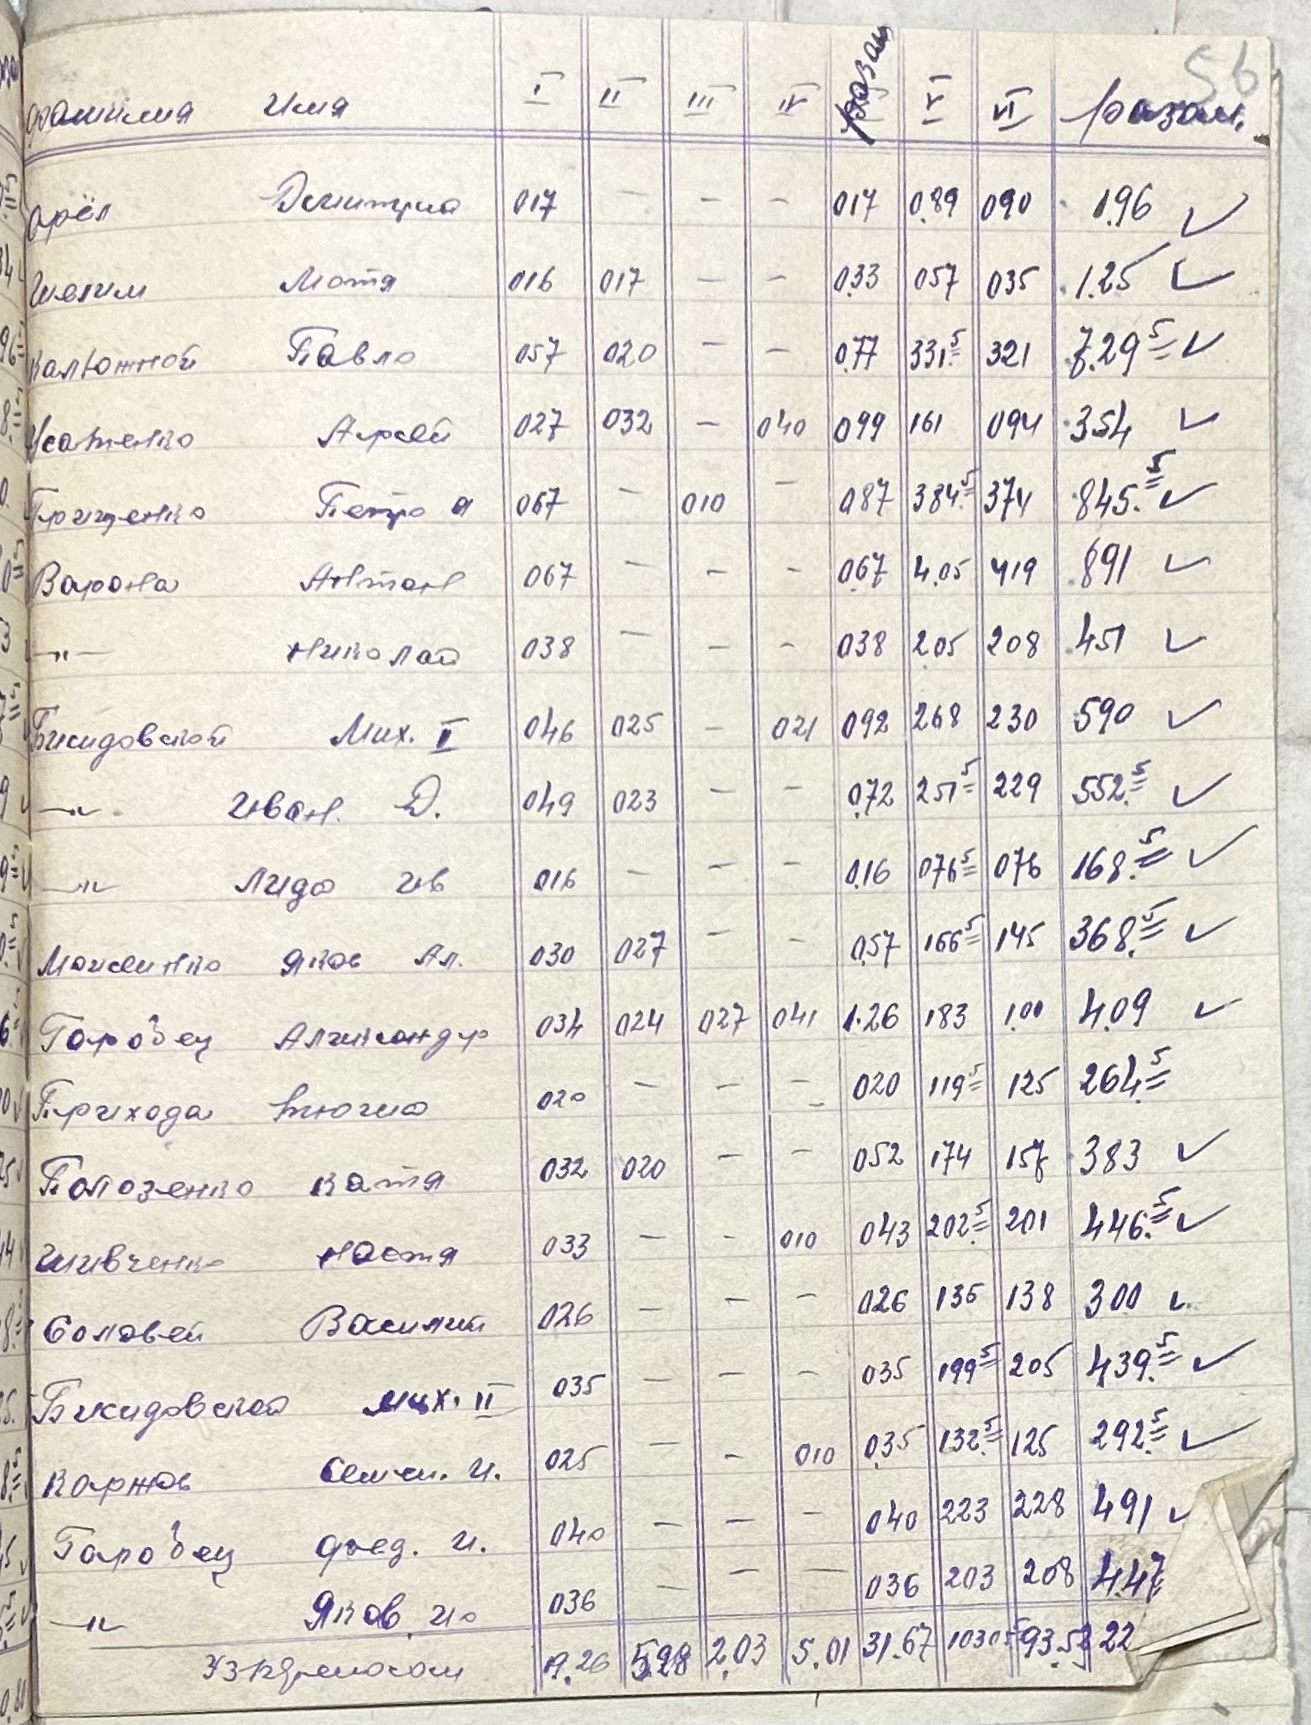 56
фамилия имя I II III IV разом V VI разом.
Орёл Дмитрий 017 — — — 017 0.89 090 1.96 ✓
Шелим Мотя 016 017 — — 0.33 057 035 1.25 ✓
Калюжной Павло 057 020 — — 0.77 331.5 321 7.29 5 ✓
Усатенко 027 032 — 040 099 161 094 354 ✓
Грищенко Петро 067 — 010 — 087 384.5 374 845.5 ✓
Варона Антон 067 — — — 067 4.05 419 891 ✓
—"— Николай 038 — — — 038 205 208 451 ✓
Мих. I 046 025 — 021 092 268 230 590 ✓
—"— Иван. Д. 049 023 — — 0.72 251 5 229 552.5 ✓
—"— Лида Ив 016 — — — 0.16 076 5 076 168.5 ✓
Яков Ал. 030 027 — — 0.57 166 5 145 368.5 ✓
Горобец Александр 034 024 027 041 1.26 183 1.00 4.09 ✓
Прихода 020 — — — 020 119 5 125 264.5
Полозенко Катя 032 020 — — 052 174 157 383 ✓
Шивченко Настя 033 — — 010 043 202.5 201 446.5 ✓
Соловей Василий 026 — — — 026 136 138 300 ✓
Мих. II 035 — — — 035 199 5 205 439.5 ✓
Коржов Семен. И. 025 — — 010 0.35 132.5 125 292.5 ✓
Горобец Фед. И. 040 — — — 040 223 228 491 ✓
—"— Яков 036 — — — 036 203 208 4.47
19.26 5.98 2.03 5.01 31.67 103 05 93.52 22